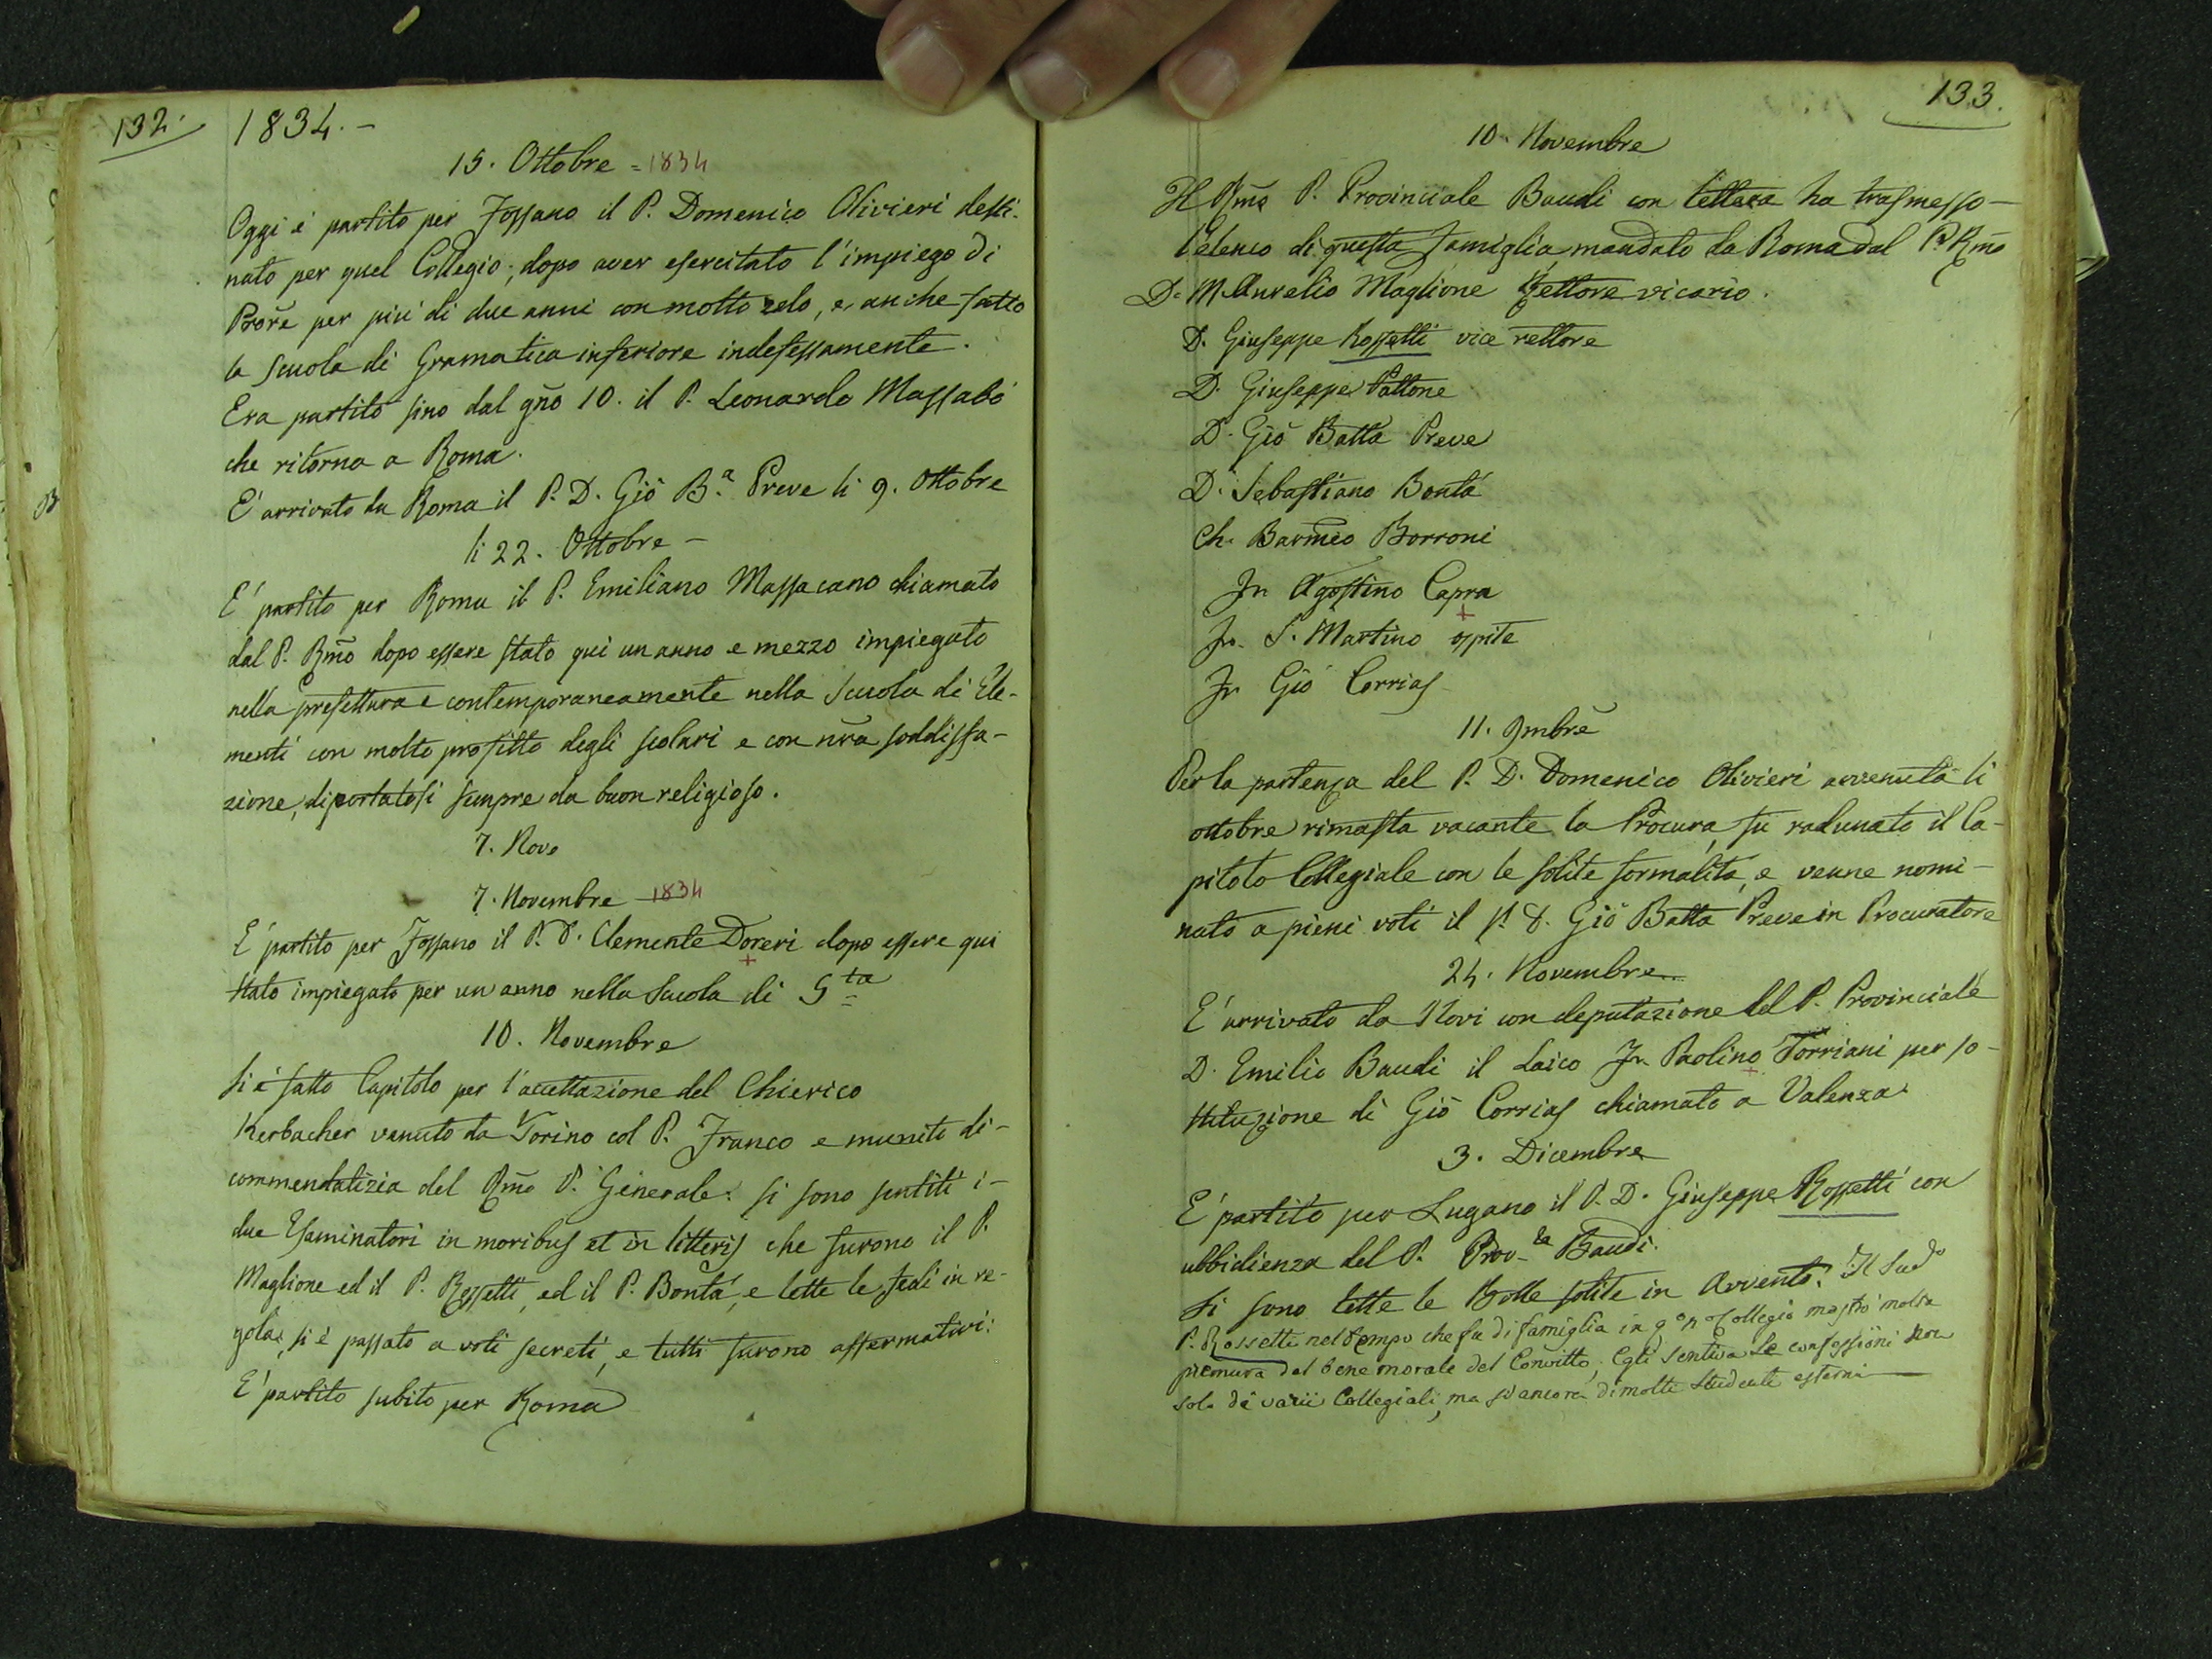 132.
1834. -
15. Ottobre = 1834
Oggi è partito per Fossano il P. Domenico Olivieri desti-
nato per quel Collegio; dopo aver esercitato l'impiego di
Prore per più di due anni con molto zelo, e anche fatto
la scuola di Gramatica inferiore indefessamente.
Era partito sino dal gno 10. il P. Leonardo Massabò
che ritorna a Roma.
E' arrivato da Roma il P. D. Giò B.a Preve li 9. Ottobre
li 22. Ottobre -
E' partito per Roma il P. Emiliano Massacano chiamato
dal P. Rmo dopo essere stato qui un anno e mezzo impiegato
nella prefettura e contemporaneamente nella Scuola di Ele-
menti con molto profitto degli scolari e con nra soddisfa-
zione, diportatosi sempre da buon religioso.
7. Nove
7. Novembre 1834
E' partito per Fossano il P. D. Clemente Doreri dopo essere qui
stato impiegato per un anno nella Scuola di 5ta
10. Novembre
Si è fatto Capitolo per l'accettazione del Chierico
Kerbacher venuto da Torino col P. Franco e munito di-
commendatizia del Rmo P. Generale. Si sono sentiti i-
due Esaminatori in moribus et in litteris che furono il P.
Maglione ed il P. Rossetti, ed il P. Bontà, e lette le fedi in re-
gola, si è passato a voti secreti, e tutti furono affermativi:
E' partito subito per Roma
133.
10. Novembre
Il Rmo P. Provinciale Baudi con lettera ha trasmesso -
l'elenco di questa famiglia mandato da Roma dal P. Rmo
D. M. Aurelio Maglione Rettore vicario.
D. Giuseppe Rossetti vice rettore
D. Giuseppe Pattone
D. Giò Batta Preve
D. Sebastiano Bontà
Ch. Barmeo Borroni
Fr Agostino Capra
Fr. S. Martino ospite
Fr Giò Corrias
11. 9mbre
Per la partenza del P. D. Domenico Olivieri avvenuta li
ottobre rimasta vacante la Procura, fu radunato il Ca-
pitolo Collegiale con le solite formalità, e venne nomi-
nato a pieni voti il P. D. Giò Batta Preve in Procuratore
24. Novembre
E' arrivato da Novi con deputazione del P. Provinciale
D. Emilio Baudi il Laico Fr Paolino Torriani per so-
stituzione di Giò Corrias chiamato a Valenza
3. Dicembre
E' partito per Lugano il P. D. Giuseppe Rossetti con
ubbidienza del P. Prov-le Baudi.
Si sono lette le Bolle solite in Avvento. Il Sudo
P. Rossetti nel tempo che fu di famiglia in Collegio mostrò molta
premura del bene morale del Convitto, Egli sentiva le confessioni non
solo di varii Collegiali, ma sì ancora di molti Studenti esterni